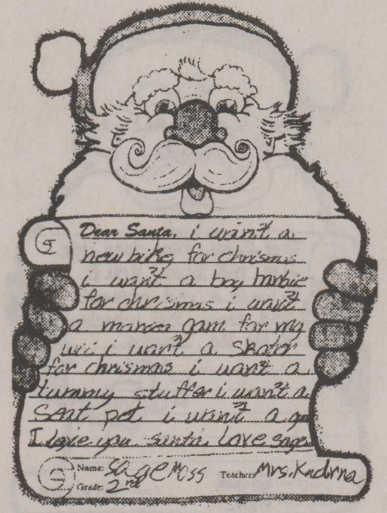 Dear Santa, i want a
new bike for chrismas
i want a boy barbie
for chrismas i want
a gam for my
wii i want a skater
for chrismas i want a
tummy stuffer i want a
seat pet i want a
I love you santa Love sage
Name: Sage Moss Teacher: Mrs. Kadrna
Grade: 2nd